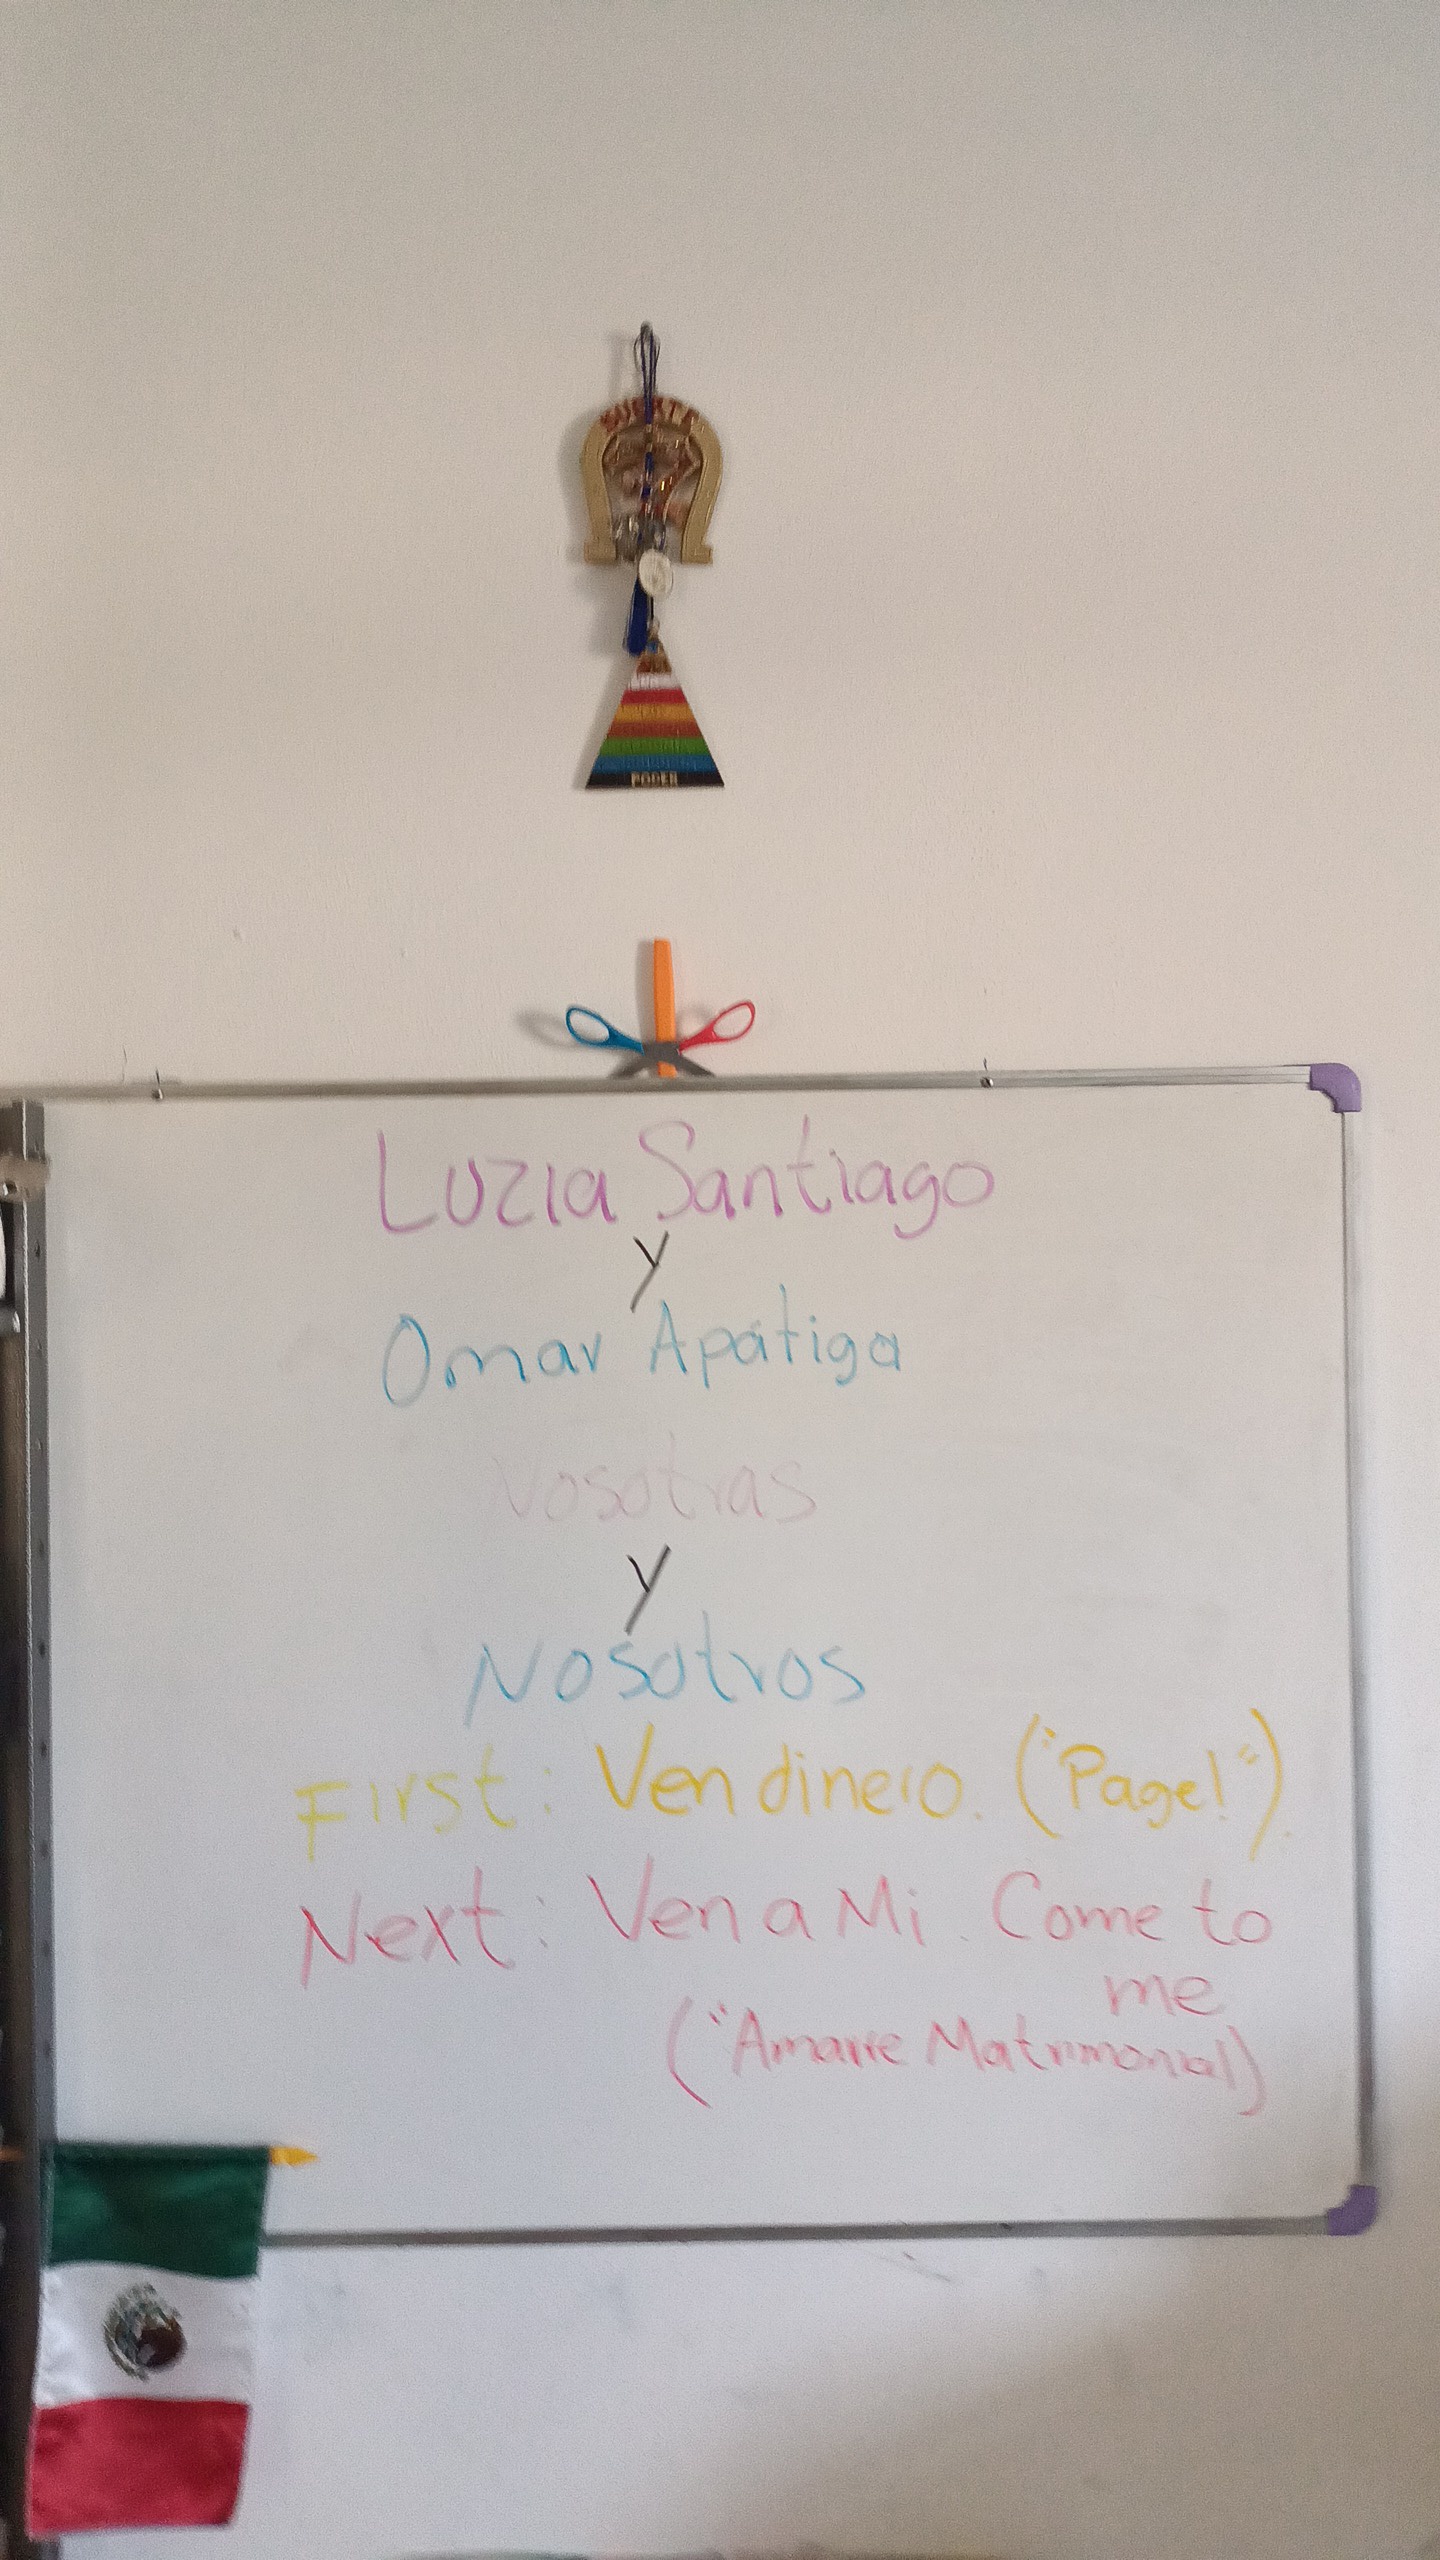 SUERTE
PODER
Luzia Santiago
y
Omar Apátiga
Nosotras
y
Nosotros
First: Ven dinero. ("Page!").
Next: Ven a Mi. Come to
me
("Amarre Matrimonial)